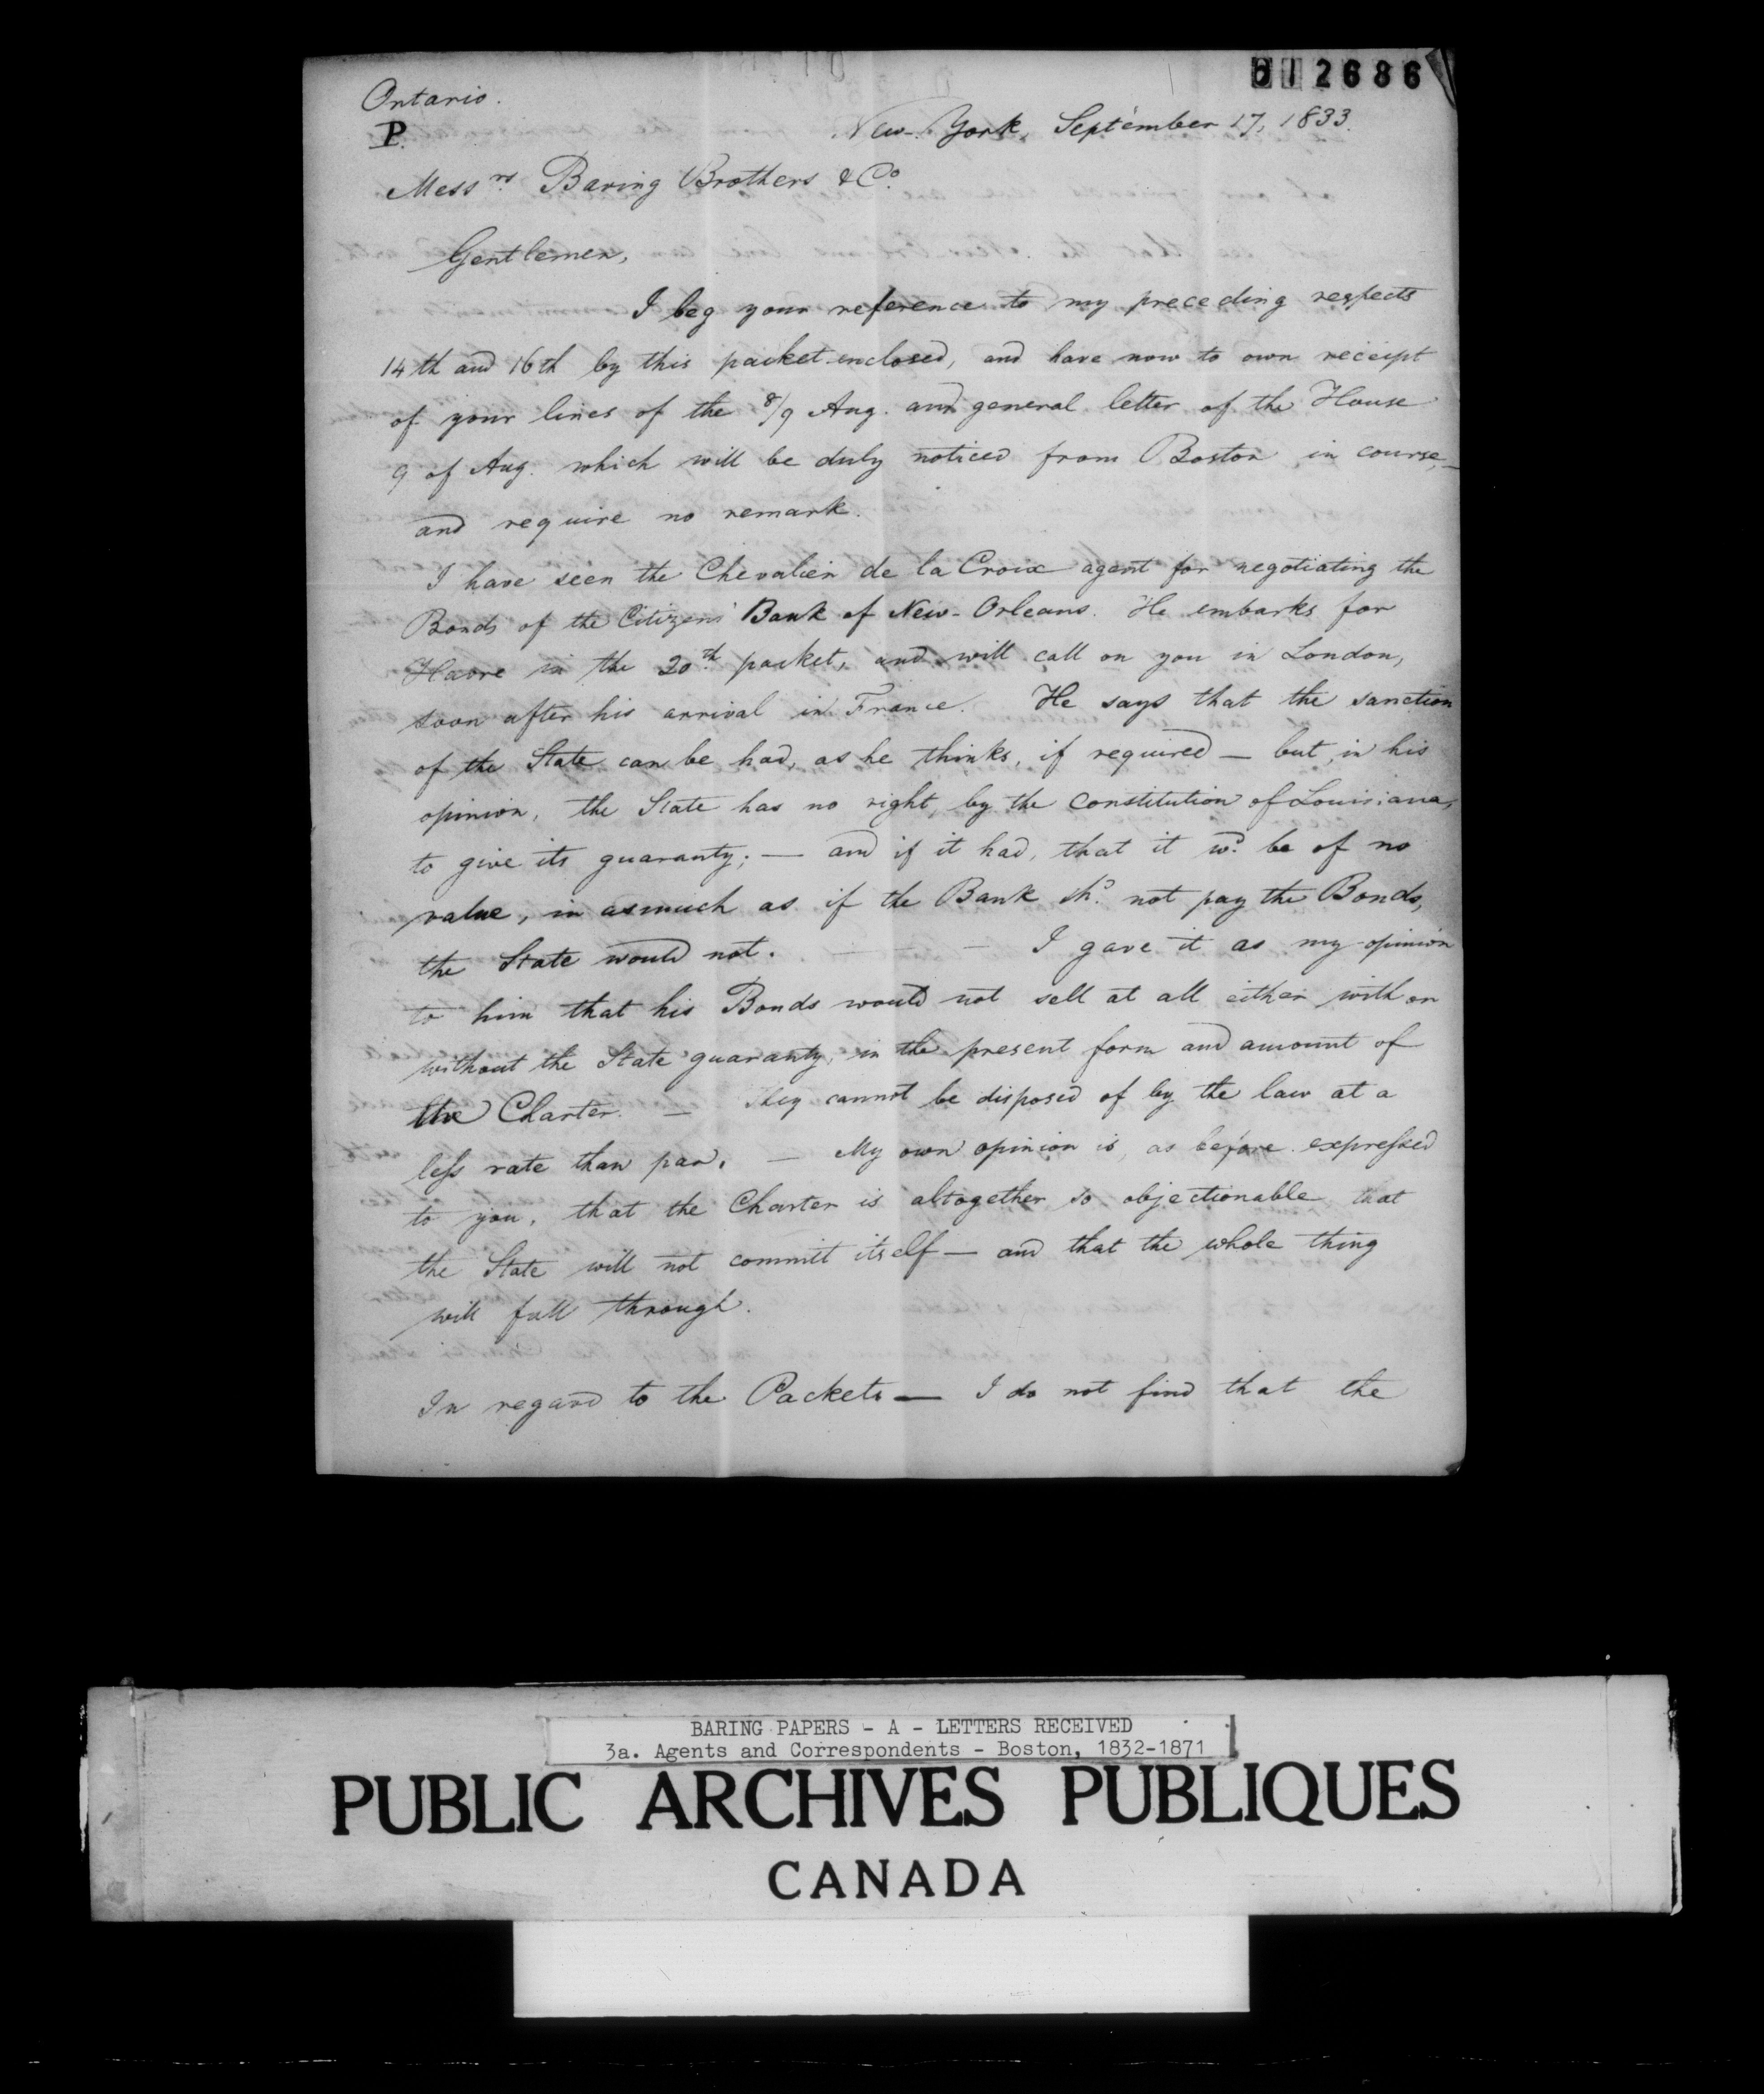 012686
Ontario.
P.
New-York, September 17, 1833.
Messrs Baring Brothers & Co.
Gentlemen,
I beg your reference to my preceding respects
14th and 16th by this packet enclosed, and have now to own receipt
of your lines of the 8/9 Aug. and general letter of the House
9 of Aug. which will be duly noticed from Boston in course,—
and require no remark.
I have seen the Chevalier de la Croix agent for negotiating the
Bonds of the Citizens' Bank of New-Orleans. He embarks for
Havre in the 20th packet, and will call on you in London,
soon after his arrival in France. He says that the sanction
of the State can be had, as he thinks, if required — but, in his
opinion, the State has no right, by the constitution of Louisiana,
to give its guaranty; — and if it had, that it wd. be of no
value, in asmuch as if the Bank shd. not pay the Bonds,
the State would not. — — — I gave it as my opinion
to him that his Bonds would not sell at all either with or
without the State guaranty, in the present form and amount of
the Charter. — They cannot be disposed of by the law at a
less rate than par. — My own opinion is, as before expressed
to you, that the Charter is altogether so objectionable that
the State will not commit itself — and that the whole thing
will fall through.
In regard to the Packets — I do not find that the
BARING PAPERS - A - LETTERS RECEIVED
3a. Agents and Correspondents - Boston, 1832-1871
PUBLIC ARCHIVES PUBLIQUES
CANADA